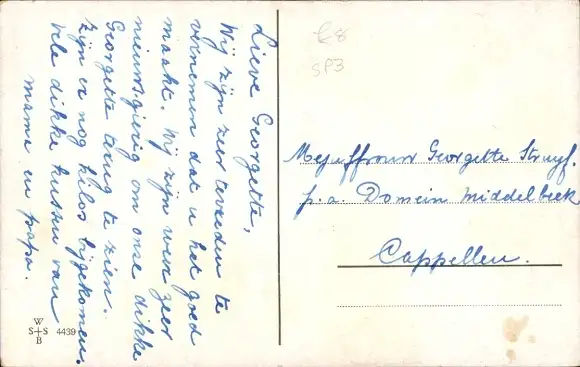 Lieve Georgette,
Wij zijn zeer tevreden te
vernemen dat u het goed
maakt. Wij zijn weer zeer
nieuwsgierig om onze dikke
Georgette terug te zien.
Zijn er nog kilos bijgekomen.
Vele dikke kussen van
mama en papa.
E8
SP3
Mejuffrouw Georgette Struyf.
p.a. Domein Middelbeek
Cappellen.
W
S+S 4439
B